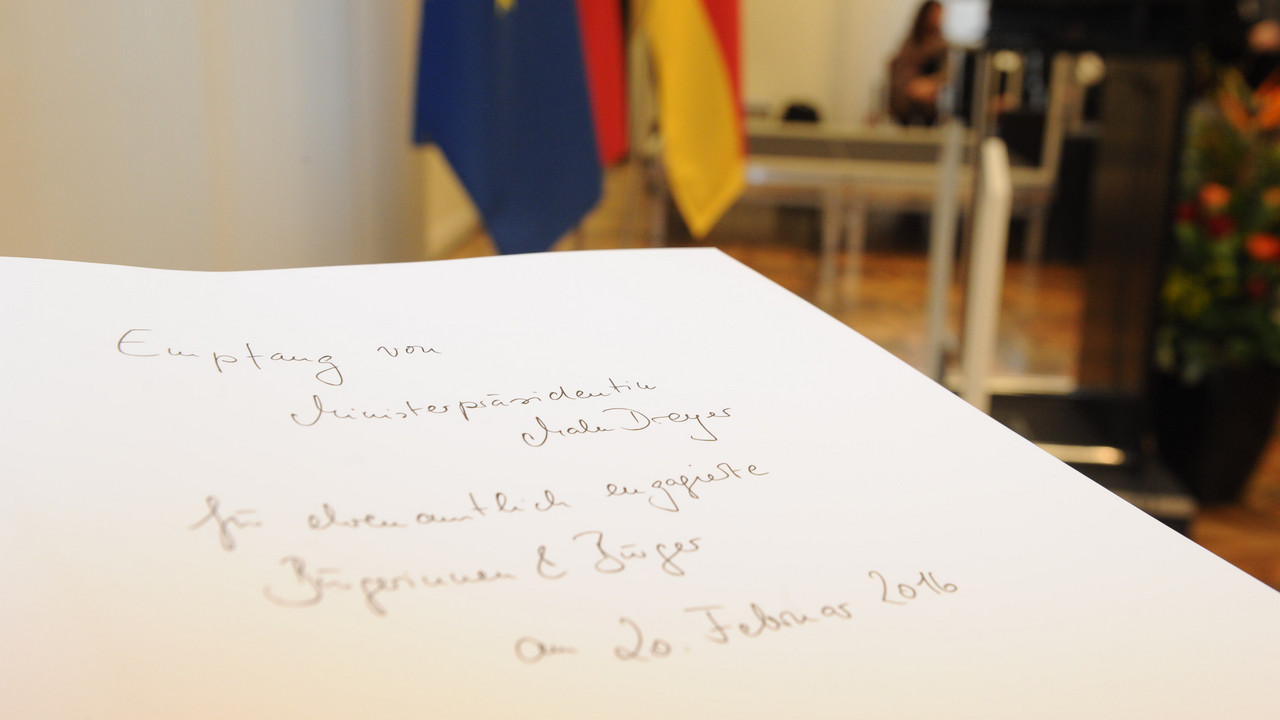 Empfang von
Ministerpräsidentin
Malu Dreyer
für ehrenamtlich engagierte
Bürgerinnen & Bürger
am 20. Februar 2016